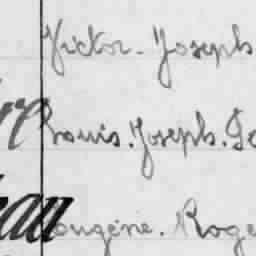 Victor. Joseph
Louis. Joseph.
Eugène. Roge